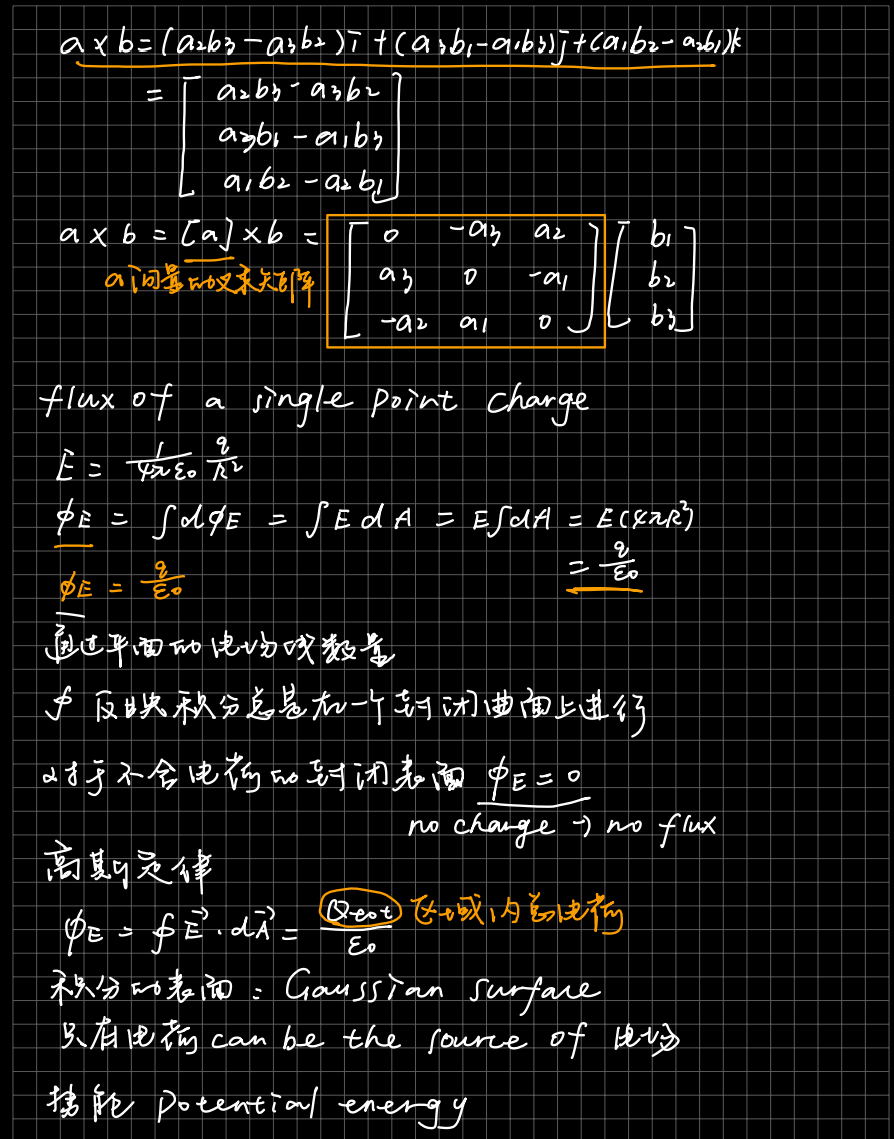 a × b = (a₂b₃ − a₃b₂)i + (a₃b₁ − a₁b₃)j + (a₁b₂ − a₂b₁)k
= [ a₂b₃ − a₃b₂
a₃b₁ − a₁b₃
a₁b₂ − a₂b₁ ]
a × b = [a] × b = [ 0 −a₃ a₂ ] [ b₁ ]
[ a₃ 0 −a₁ ] [ b₂ ]
[ −a₂ a₁ 0 ] [ b₃ ]
a向量的叉乘矩阵
flux of a single point charge
E = 1/(4πε₀) q/R²
ϕE = ∫dϕE = ∫E dA = E∫dA = E(4πR²)
= q/ε₀
ϕE = q/ε₀
通过平面的电场线数量
∮ 反映积分总是在一个封闭曲面上进行
对于不含电荷的封闭表面 ϕE = 0
no charge → no flux
高斯定律
ϕE = ∮E⃗·dA⃗ = Qtot/ε₀ 区域内总电荷
积分的表面：Gaussian surface
只有电荷 can be the source of 电场
势能 potential energy